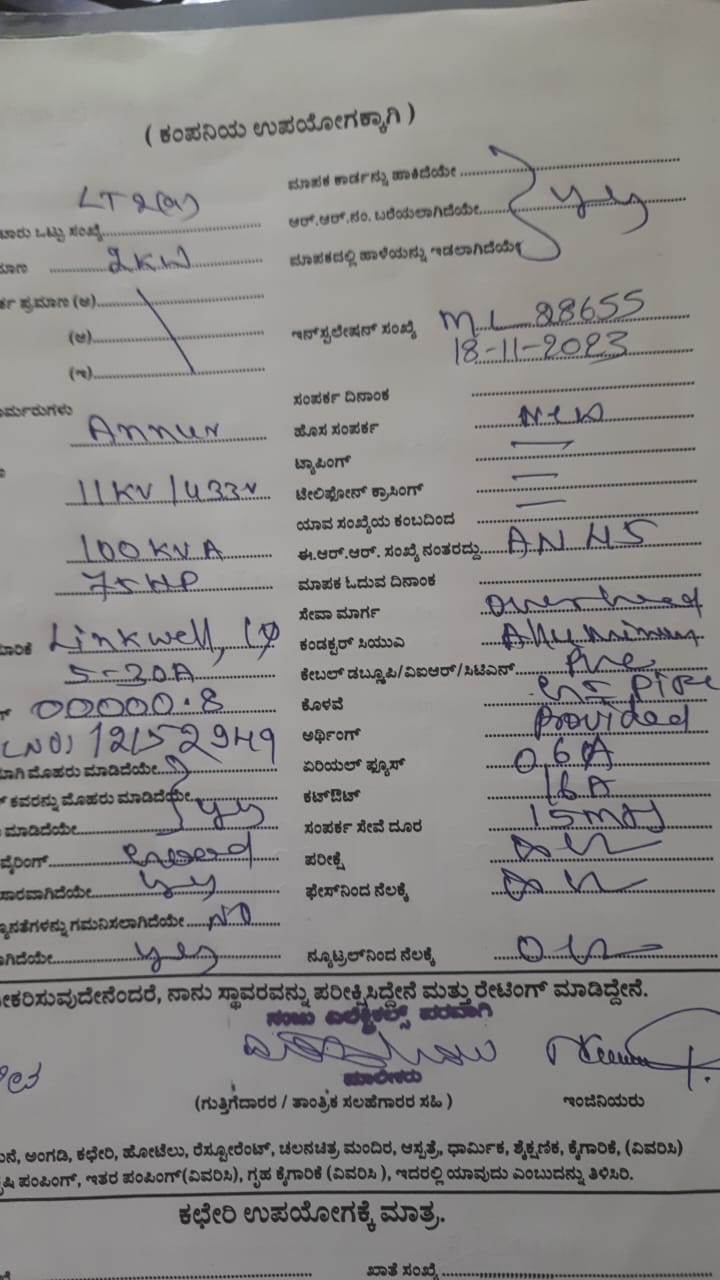 ( ಕಂಪನಿಯ ಉಪಯೋಗಕ್ಕಾಗಿ )
LT 2(a) ಮಾಪಕ ಕಾರ್ಡನ್ನು ಹಾಕಿದೆಯೇ
ಟಾರು ಒಟ್ಟು ಸಂಖ್ಯೆ ಆರ್.ಆರ್.ನಂ. ಬರೆಯಲಾಗಿದೆಯೇ yes
ಮಾಣ 2KW ಮಾಪಕದಲ್ಲಿ ಹಾಳೆಯನ್ನು ಇಡಲಾಗಿದೆಯೇ
ರ್ಕ ಪ್ರಮಾಣ (ಅ)
(ಆ) ಇನ್‌ಸ್ಟಲೇಷನ್ ಸಂಖ್ಯೆ ML 28655
(ಇ) 18-11-2023
ಸಂಪರ್ಕ ದಿನಾಂಕ
ಾರ್ಮರುಗಳು Annur ಹೊಸ ಸಂಪರ್ಕ New
ಟ್ಯಾಪಿಂಗ್ —
11KV/433V ಟೇಲಿಫೋನ್ ಕ್ರಾಸಿಂಗ್ —
ಯಾವ ಸಂಖ್ಯೆಯ ಕಂಬದಿಂದ —
100KVA ಈ.ಆರ್.ಆರ್. ಸಂಖ್ಯೆ ನಂತರದ್ದು AN H5
75HP ಮಾಪಕ ಓದುವ ದಿನಾಂಕ
ಸೇವಾ ಮಾರ್ಗ Overhead
ಾರಿಕೆ Linkwell, 1φ ಕಂಡಕ್ಟರ್ ಸಿಯುಎ Alluminum
5-30A ಕೇಬಲ್ ಡಬ್ಲ್ಯೂಪಿ/ವಿಐಆರ್/ಸಿಟಿಎಸ್ PVC
00000.8 ಕೊಳವೆ PIPE
12152949 ಅರ್ಥಿಂಗ್ Provided
ಾಗಿ ಮೊಹರು ಮಾಡಿದೆಯೇ ಏರಿಯಲ್ ಫ್ಯೂಸ್ 06A
್ ಕವರನ್ನು ಮೊಹರು ಮಾಡಿದೆಯೇ yes ಕಟ್‌ಔಟ್ 16A
ಮಾಡಿದೆಯೇ ಸಂಪರ್ಕ ಸೇವೆ ದೂರ 15
ವೈರಿಂಗ್ ಪರೀಕ್ಷೆ
ಸಾರವಾಗಿದೆಯೇ yes ಫೇಸ್‌ನಿಂದ ನೆಲಕ್ಕೆ
್ಯೂನತೆಗಳನ್ನು ಗಮನಿಸಲಾಗಿದೆಯೇ NO
ಾಗಿದೆಯೇ yes ನ್ಯೂಟ್ರಲ್‌ನಿಂದ ನೆಲಕ್ಕೆ
ೀಕರಿಸುವುದೇನೆಂದರೆ, ನಾನು ಸ್ಥಾವರವನ್ನು ಪರೀಕ್ಷಿಸಿದ್ದೇನೆ ಮತ್ತು ರೇಟಿಂಗ್ ಮಾಡಿದ್ದೇನೆ.
ನಂಜು ಎಲೆಕ್ಟ್ರಿಕಲ್ಸ್ ಪರವಾಗಿ
ಮಾಲೀಕರು
(ಗುತ್ತಿಗೆದಾರರ / ತಾಂತ್ರಿಕ ಸಲಹೆಗಾರರ ಸಹಿ ) ಇಂಜಿನಿಯರು
ಮನೆ, ಅಂಗಡಿ, ಕಛೇರಿ, ಹೋಟೆಲು, ರೆಸ್ಟೋರೆಂಟ್, ಚಲನಚಿತ್ರ ಮಂದಿರ, ಆಸ್ಪತ್ರೆ, ಧಾರ್ಮಿಕ, ಶೈಕ್ಷಣಿಕ, ಕೈಗಾರಿಕೆ, (ವಿವರಿಸಿ)
ೃಷಿ ಪಂಪಿಂಗ್, ಇತರ ಪಂಪಿಂಗ್(ವಿವರಿಸಿ), ಗೃಹ ಕೈಗಾರಿಕೆ (ವಿವರಿಸಿ ), ಇದರಲ್ಲಿ ಯಾವುದು ಎಂಬುದನ್ನು ತಿಳಿಸಿರಿ.
ಕಛೇರಿ ಉಪಯೋಗಕ್ಕೆ ಮಾತ್ರ.
ಖಾತೆ ಸಂಖ್ಯೆ